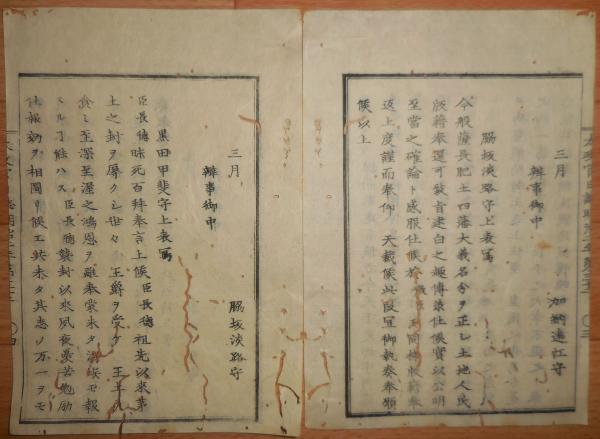 三月
加納遠江守
辨事御中
脇坂淡路守上表寫
今般薩長肥土四藩大義名分ヲ正シ土地人民
版籍奉還可致旨建白之趣傳承仕候實以公明
至當之確論ト感服仕候於
同様版籍奉
返上度謹而奉仰 天裁候此段宜御執奏奉願
候以上
三月
脇坂淡路守
辨事御中
黒田甲斐守上表寫
臣長徳昧死百拜奉言上候臣長徳祖先以来茅
土之封ヲ辱クシ世々 王爵ヲ受ケ 王土
食シ至深至渥之鴻恩ヲ奉蒙未タ 模モ報
スル丁能ハス臣長徳襲封以来夙夜憂苦勉勵
報効ヲ相圖リ候エ共未タ其志ノ万一ヲモ